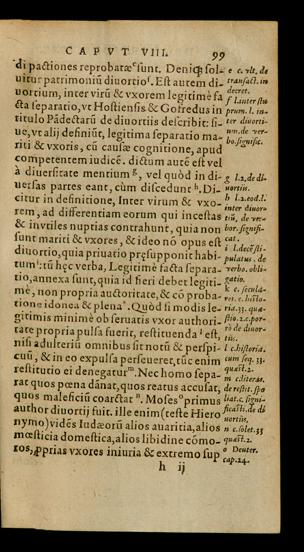 CAPVT VIII. 99
di pactiones reprobatæ ᵉ sunt. Deniq; sol-
uitur patrimoniũ diuortio ᶠ. Est autem di-
uortium, inter virũ & vxorem legitimè fa
cta separatio, vt Hostiensis & Gofredus in
titulo Pãdectarũ de diuortiis describit: si-
ue, vt alij definiũt, legitima separatio ma-
riti & vxoris, cũ causæ cognitione, apud
competentem iudicẽ. dictum autẽ est vel
à diuersitate mentium ᵍ, vel quòd in di-
uersas partes eant, cùm discedunt ʰ. Di-
citur in definitione, Inter virum & vxo-
rem, ad differentiam eorum qui incestas
& inutiles nuptias contrahunt, quia non
sunt mariti & vxores, & ideo nõ opus est
diuortio, quia priuatio præsupponit habi-
tum ⁱ: tũ hęc verba, Legitimè facta separa-
tio, annexa sunt, quia id fieri debet legiti-
mè, non propria auctoritate, & cõ proba-
tione idonea & plena ᵏ. Quòd si modis le-
gitimis minimè obseruatis vxor authori-
tate propria pulsa fuerit, restituenda ˡ est,
nisi adulteriũ omnibus sit notũ & perspi-
cuũ, & in eo expulsa perseueret, tũc enim
restitutio ei denegatur ᵐ. Nec homo sepa-
rat quos pœna dãnat, quos reatus accusat,
quos maleficiũ coarctat ⁿ. Moses ᵒ primus
author diuortij fuit. ille enim (teste Hiero
nymo) vidẽs Iudæorũ alios auaritia, alios
mœstitia domestica, alios libidine cõmo-
tos, ꝓprias vxores iniuria & extremo sup
h ij
e c. vlt. de
transact. in
decret.
f l. inter stu
prum. l. in-
ter diuorti-
um. de ver-
bo. signific.
g l. 2. de di-
uortiis.
h l. 2. eod. l.
inter diuor-
tiũ, de ver-
bor. signifi-
cat.
i l. decẽ sti-
pulatus. de
verbo. obli-
gatio.
k c. secula-
res. c. histo-
ria. 33. quæ-
stio. 2. c. por-
rò de diuor-
tiis.
l c. historia.
cum seq. 33.
quæst. 2.
m c. literas.
de restit. spo
liat. c. signi-
ficasti. de di
uortiis.
n c. solet. 33
quæst. 2.
o Deuter.
cap. 24.